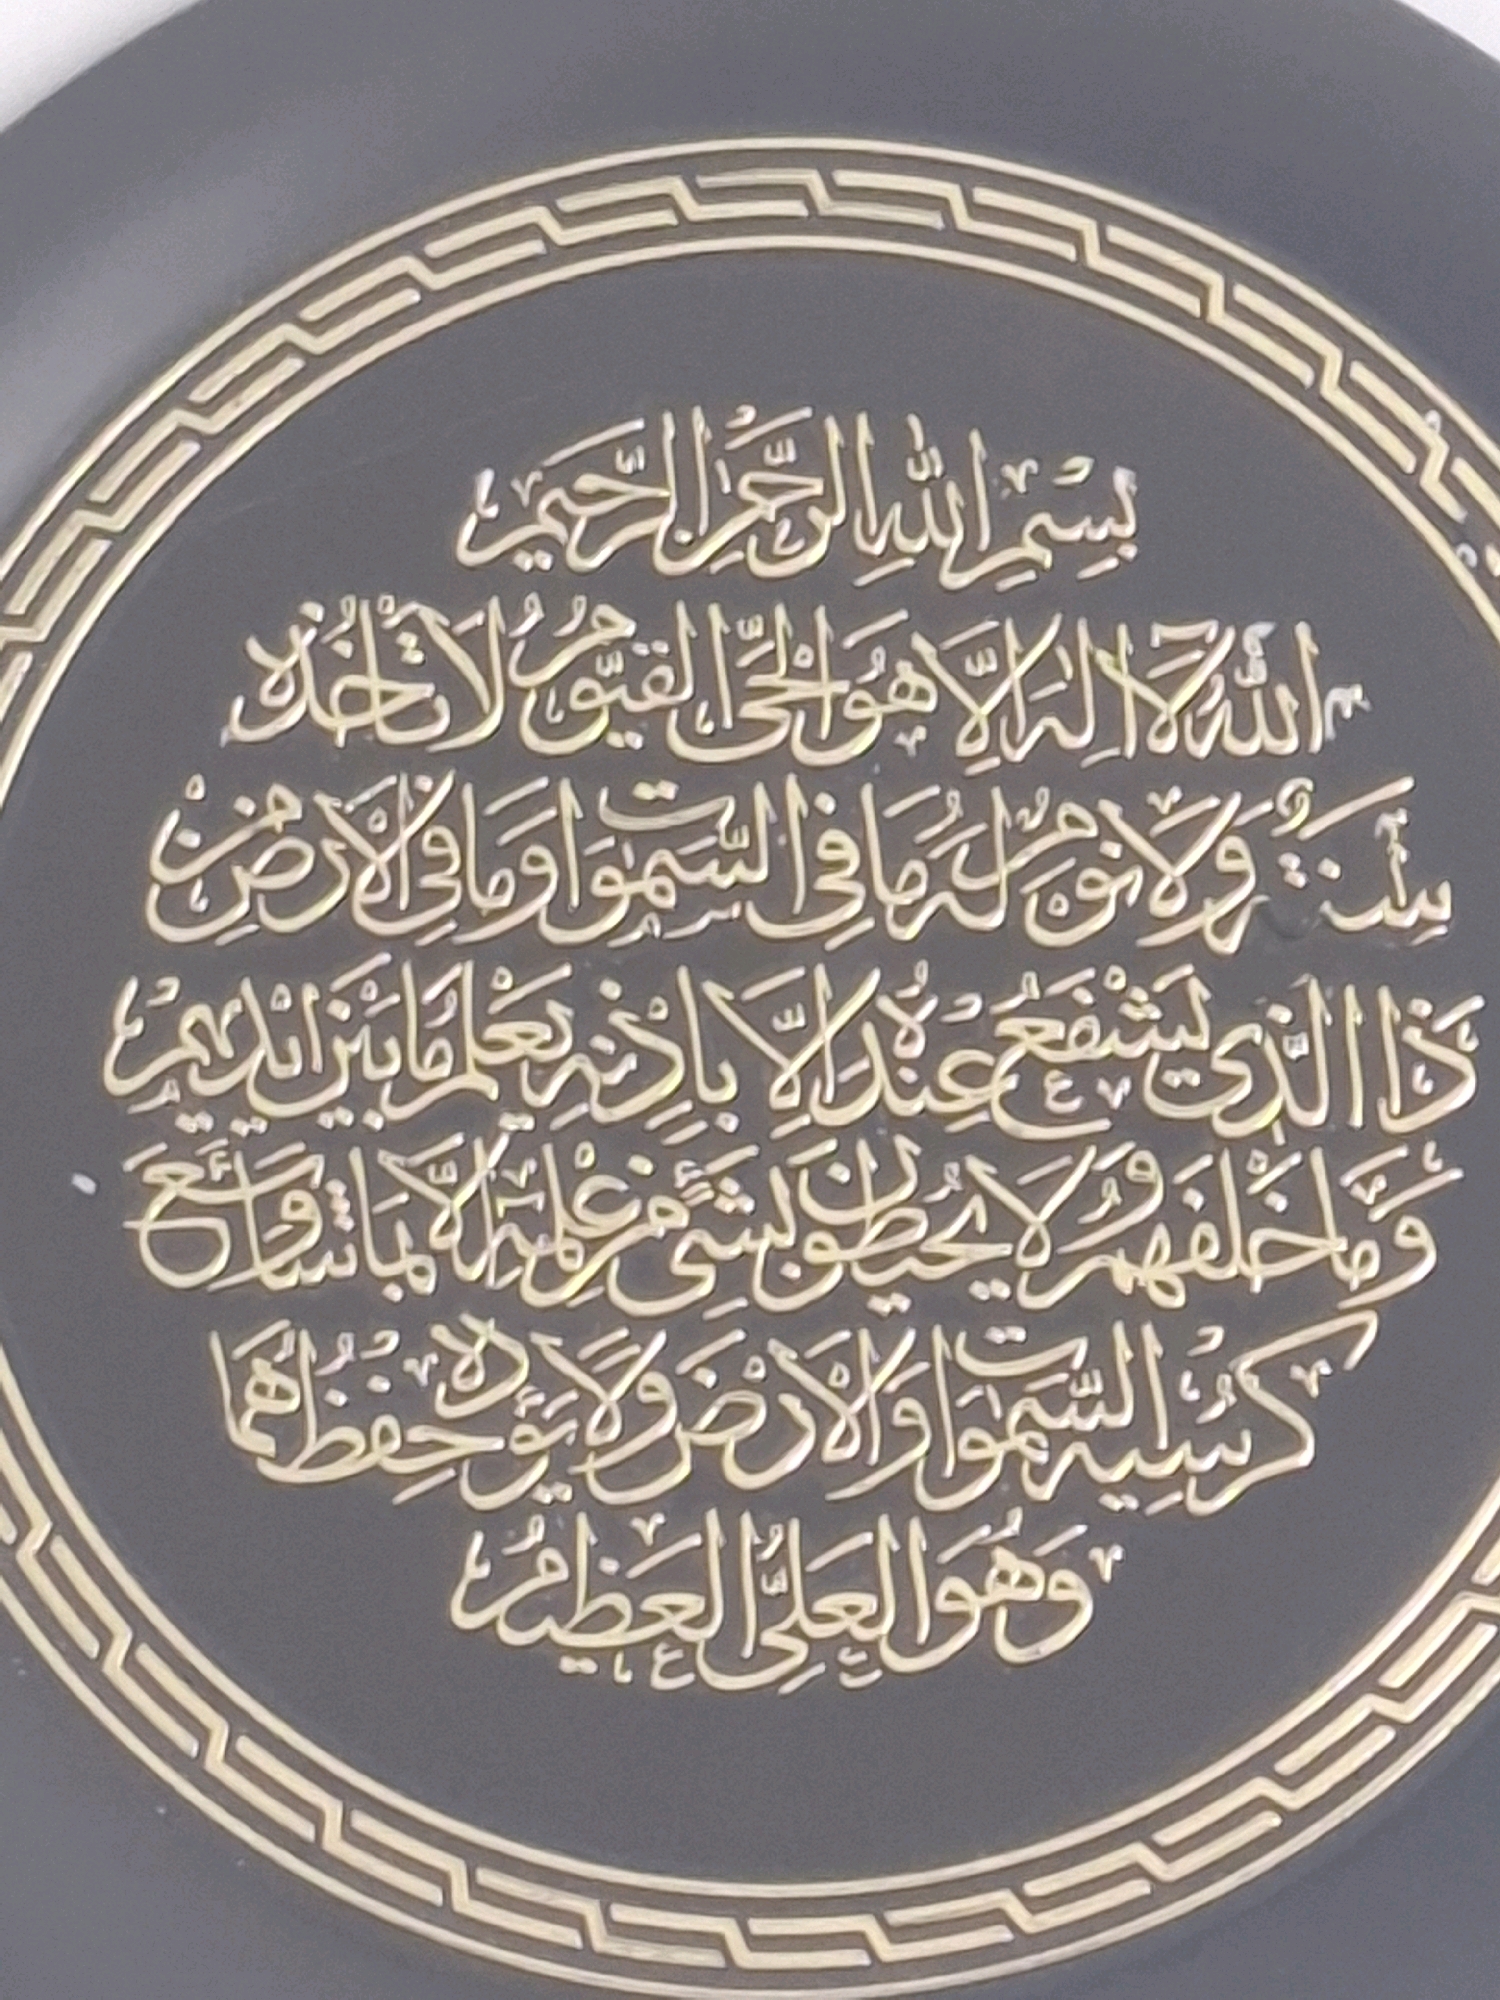 بِسْمِ اللهِ الرَّحْمٰنِ الرَّحِيمِ
اَللهُ لَا اِلٰهَ اِلَّا هُوَ الْحَيُّ الْقَيُّومُ لَا تَأْخُذُهُ
سِنَةٌ وَلَا نَوْمٌ لَهُ مَا فِي السَّمٰوَاتِ وَمَا فِي الْاَرْضِ مَنْ
ذَا الَّذِي يَشْفَعُ عِنْدَهُ اِلَّا بِاِذْنِهِ يَعْلَمُ مَا بَيْنَ اَيْدِيهِمْ
وَمَا خَلْفَهُمْ وَلَا يُحِيطُونَ بِشَيْءٍ مِنْ عِلْمِهِ اِلَّا بِمَا شَاءَ وَسِعَ
كُرْسِيُّهُ السَّمٰوَاتِ وَالْاَرْضَ وَلَا يَؤُدُهُ حِفْظُهُمَا
وَهُوَ الْعَلِيُّ الْعَظِيمُ